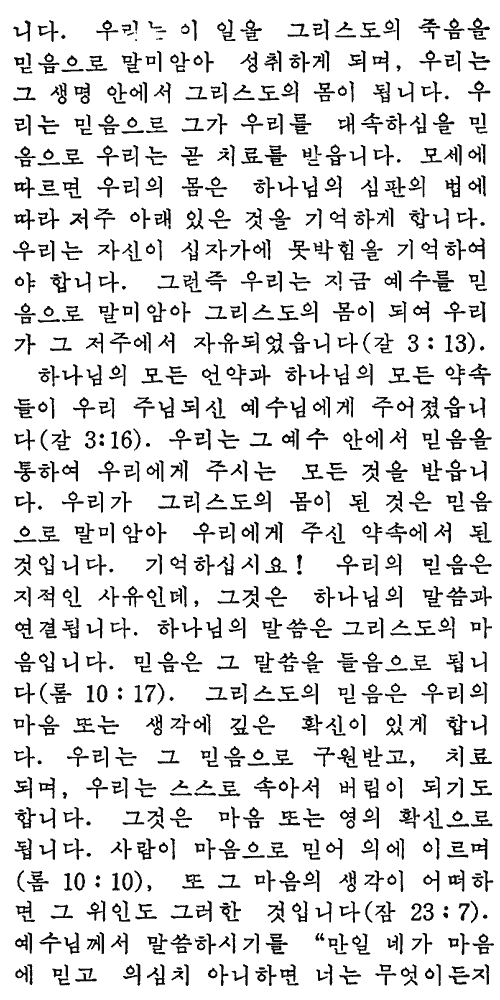 니다. 우리는 이 일을 그리스도의 죽음을
믿음으로 말미암아 성취하게 되며, 우리는
그 생명 안에서 그리스도의 몸이 됩니다. 우
리는 믿음으로 그가 우리를 대속하심을 믿
음으로 우리는 곧 치료를 받읍니다. 모세에
따르면 우리의 몸은 하나님의 심판의 법에
따라 저주 아래 있은 것을 기억하게 합니다.
우리는 자신이 십자가에 못박힘을 기억하여
야 합니다. 그런즉 우리는 지금 예수를 믿
음으로 말미암아 그리스도의 몸이 되여 우리
가 그 저주에서 자유되었읍니다(갈 3 : 13).
하나님의 모든 언약과 하나님의 모든 약속
들이 우리 주님되신 예수님에게 주어졌읍니
다(갈 3:16). 우리는 그 예수 안에서 믿음을
통하여 우리에게 주시는 모든 것을 받읍니
다. 우리가 그리스도의 몸이 된 것은 믿음
으로 말미암아 우리에게 주신 약속에서 된
것입니다. 기억하십시요! 우리의 믿음은
지적인 사유인데, 그것은 하나님의 말씀과
연결됩니다. 하나님의 말씀은 그리스도의 마
음입니다. 믿음은 그 말씀을 들음으로 됩니
다(롬 10 : 17). 그리스도의 믿음은 우리의
마음 또는 생각에 깊은 확신이 있게 합니
다. 우리는 그 믿음으로 구원받고, 치료
되며, 우리는 스스로 속아서 버림이 되기도
합니다. 그것은 마음 또는 영의 확신으로
됩니다. 사람이 마음으로 믿어 의에 이르며
(롬 10 : 10), 또 그 마음의 생각이 어떠하
면 그 위인도 그러한 것입니다(잠 23 : 7).
예수님께서 말씀하시기를 “만일 네가 마음
에 믿고 의심치 아니하면 너는 무엇이든지